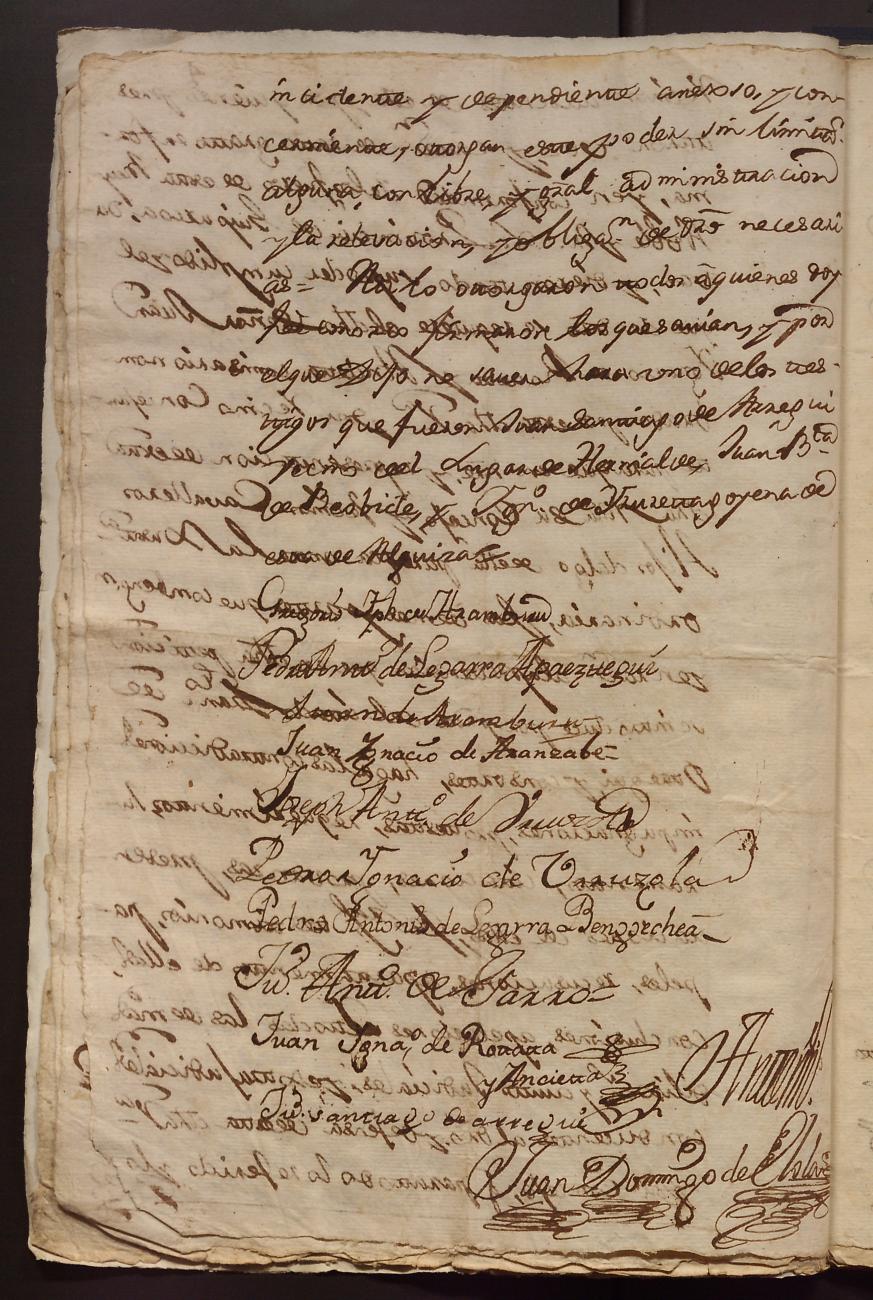 incidente y dependiente anexso, y con-
cerniente, otorgan este poder sin limittº.
alguna con libre, y gral administracion
y la relevacion, y obligazn. de dro necesari
as= Asi lo otorgaron todos a quienes doy
fee conozco firmaron los que savian, y por
el que dijo no saver uno de los tes-
tigos que fueron Juan Santiago de Arregui
vecino del Lugar de Hernialde, Juan Bta
de Beobide, y Ignº. de Yturettagoyena de
esta de Alquiza=
Gregorio Aramburu
Pedro Anttº de Legarra Apaeztegui
Juan de Aramburu
Juan Ygnacio de Aranzabe=
Joseph Anttº de
Pedro Ygnacio de Urruzola
Pedro Antonio de Legarra Bengoechea
Juº. Anttº. de Garro=
Juan Ygnaº de Rotaeta
y Ancietta
Juº. Santiago de arregui
Antemi
Juan Domingo de